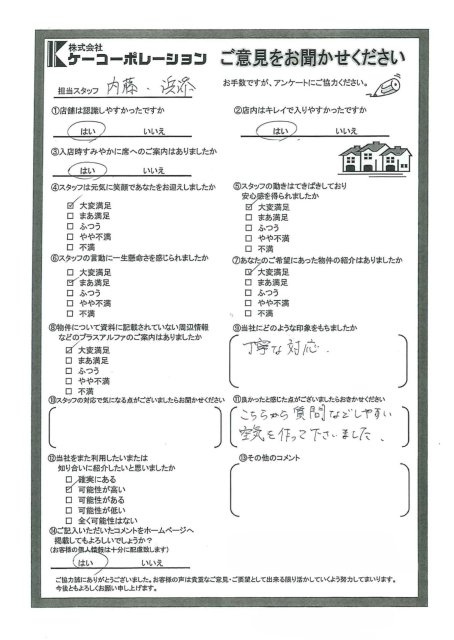 株式会社
ケーコーポレーション ご意見をお聞かせください
担当スタッフ 内藤・浜添
お手数ですが、アンケートにご協力ください。
①店舗は認識しやすかったですか
はい いいえ
②店内はキレイで入りやすかったですか
はい いいえ
③入店時すみやかに席へのご案内はありましたか
はい いいえ
④スタッフは元気に笑顔であなたをお迎えしましたか
☑ 大変満足
□ まあ満足
□ ふつう
□ やや不満
□ 不満
⑤スタッフの動きはてきぱきしており
安心感を得られましたか
☑ 大変満足
□ まあ満足
□ ふつう
□ やや不満
□ 不満
⑥スタッフの言動に一生懸命さを感じられましたか
□ 大変満足
☑ まあ満足
□ ふつう
□ やや不満
□ 不満
⑦あなたのご希望にあった物件の紹介はありましたか
☑ 大変満足
□ まあ満足
□ ふつう
□ やや不満
□ 不満
⑧物件について資料に記載されていない周辺情報
などのプラスアルファのご案内はありましたか
☑ 大変満足
□ まあ満足
□ ふつう
□ やや不満
□ 不満
⑨当社にどのような印象をもちましたか
丁寧な対応.
⑩スタッフの対応で気になる点がございましたらお聞かせください
⑪良かったと感じた点がございましたらおきかせください
こちらから質問などしやすい
空気を作って下さいました.
⑫当社をまた利用したいまたは
知り合いに紹介したいと思いましたか
□ 確実にある
☑ 可能性が高い
□ 可能性がある
□ 可能性が低い
□ 全く可能性はない
⑬その他のコメント
⑭ご記入いただいたコメントをホームページへ
掲載してもよろしいでしょうか?
(お客様の個人情報は十分に配慮致します)
はい いいえ
ご協力誠にありがとうございました。お客様の声は貴重なご意見・ご要望として出来る限り活かしていくよう努力してまいります。
今後ともよろしくお願い申し上げます。